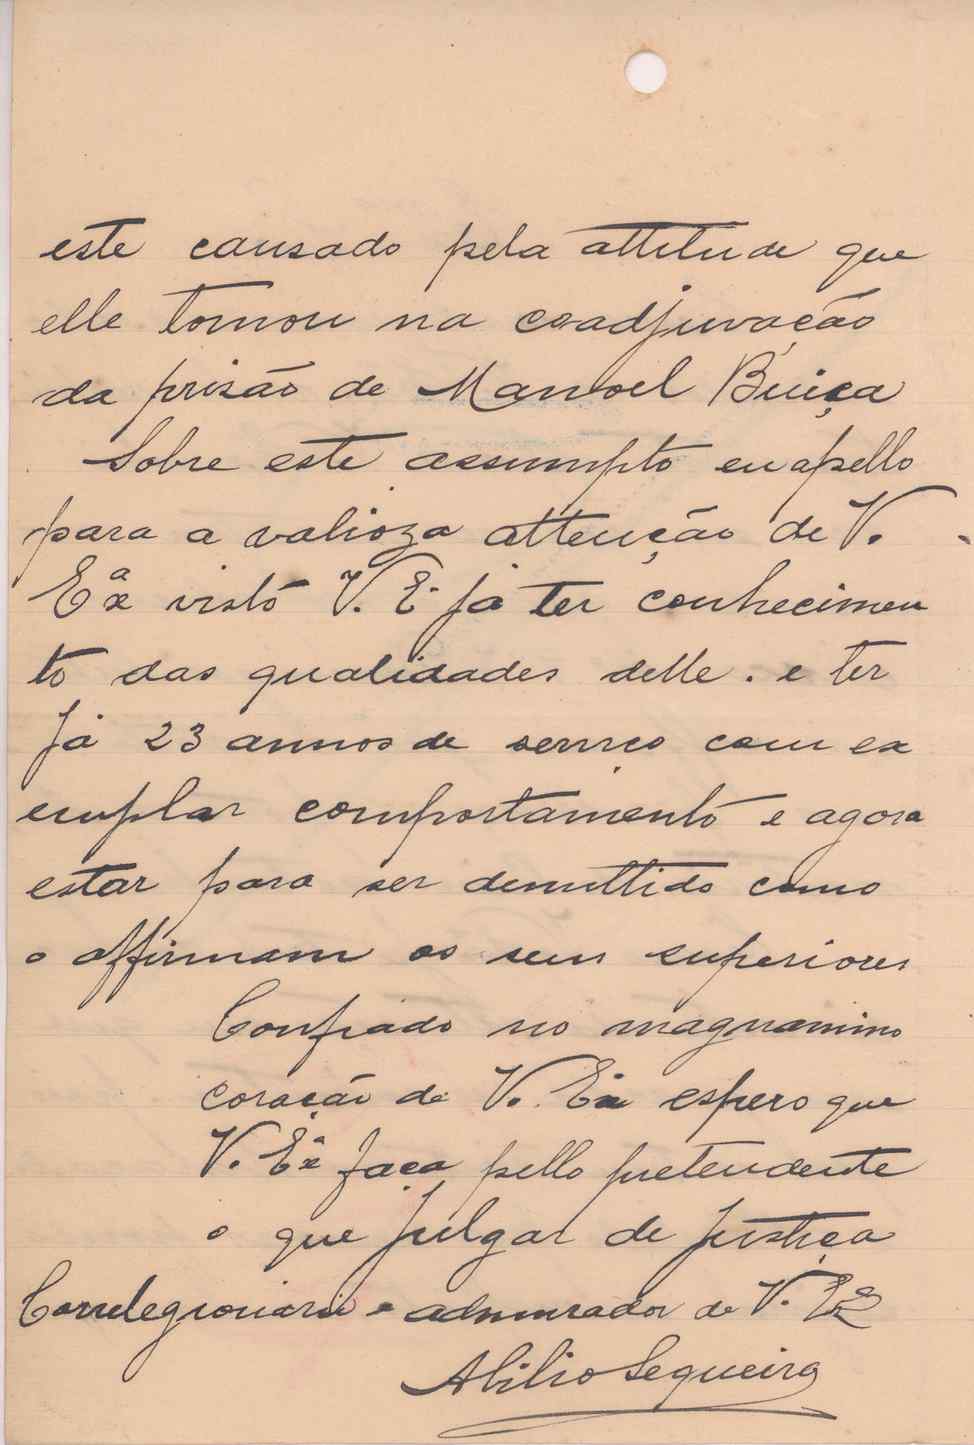 este causado pela attitude que
elle tomou na coadjuvação
da prisão de Manoel Buiça
Sobre este assumpto eu apello
para a valioza attenção de V.
Exª visto V. E já ter conhecimen
to das qualidades delle. e ter
já 23 annos de serviço com ex
emplar comportamento e agora
estar para ser demittido como
o affirmam os seus superiores
Confiado no magnanimo
coração de V. Exª espero que
V. Exª faça pello pretendente
o que julgar de justiça
Correlegionario e admirador de V. Exª
Abilio Sequeira